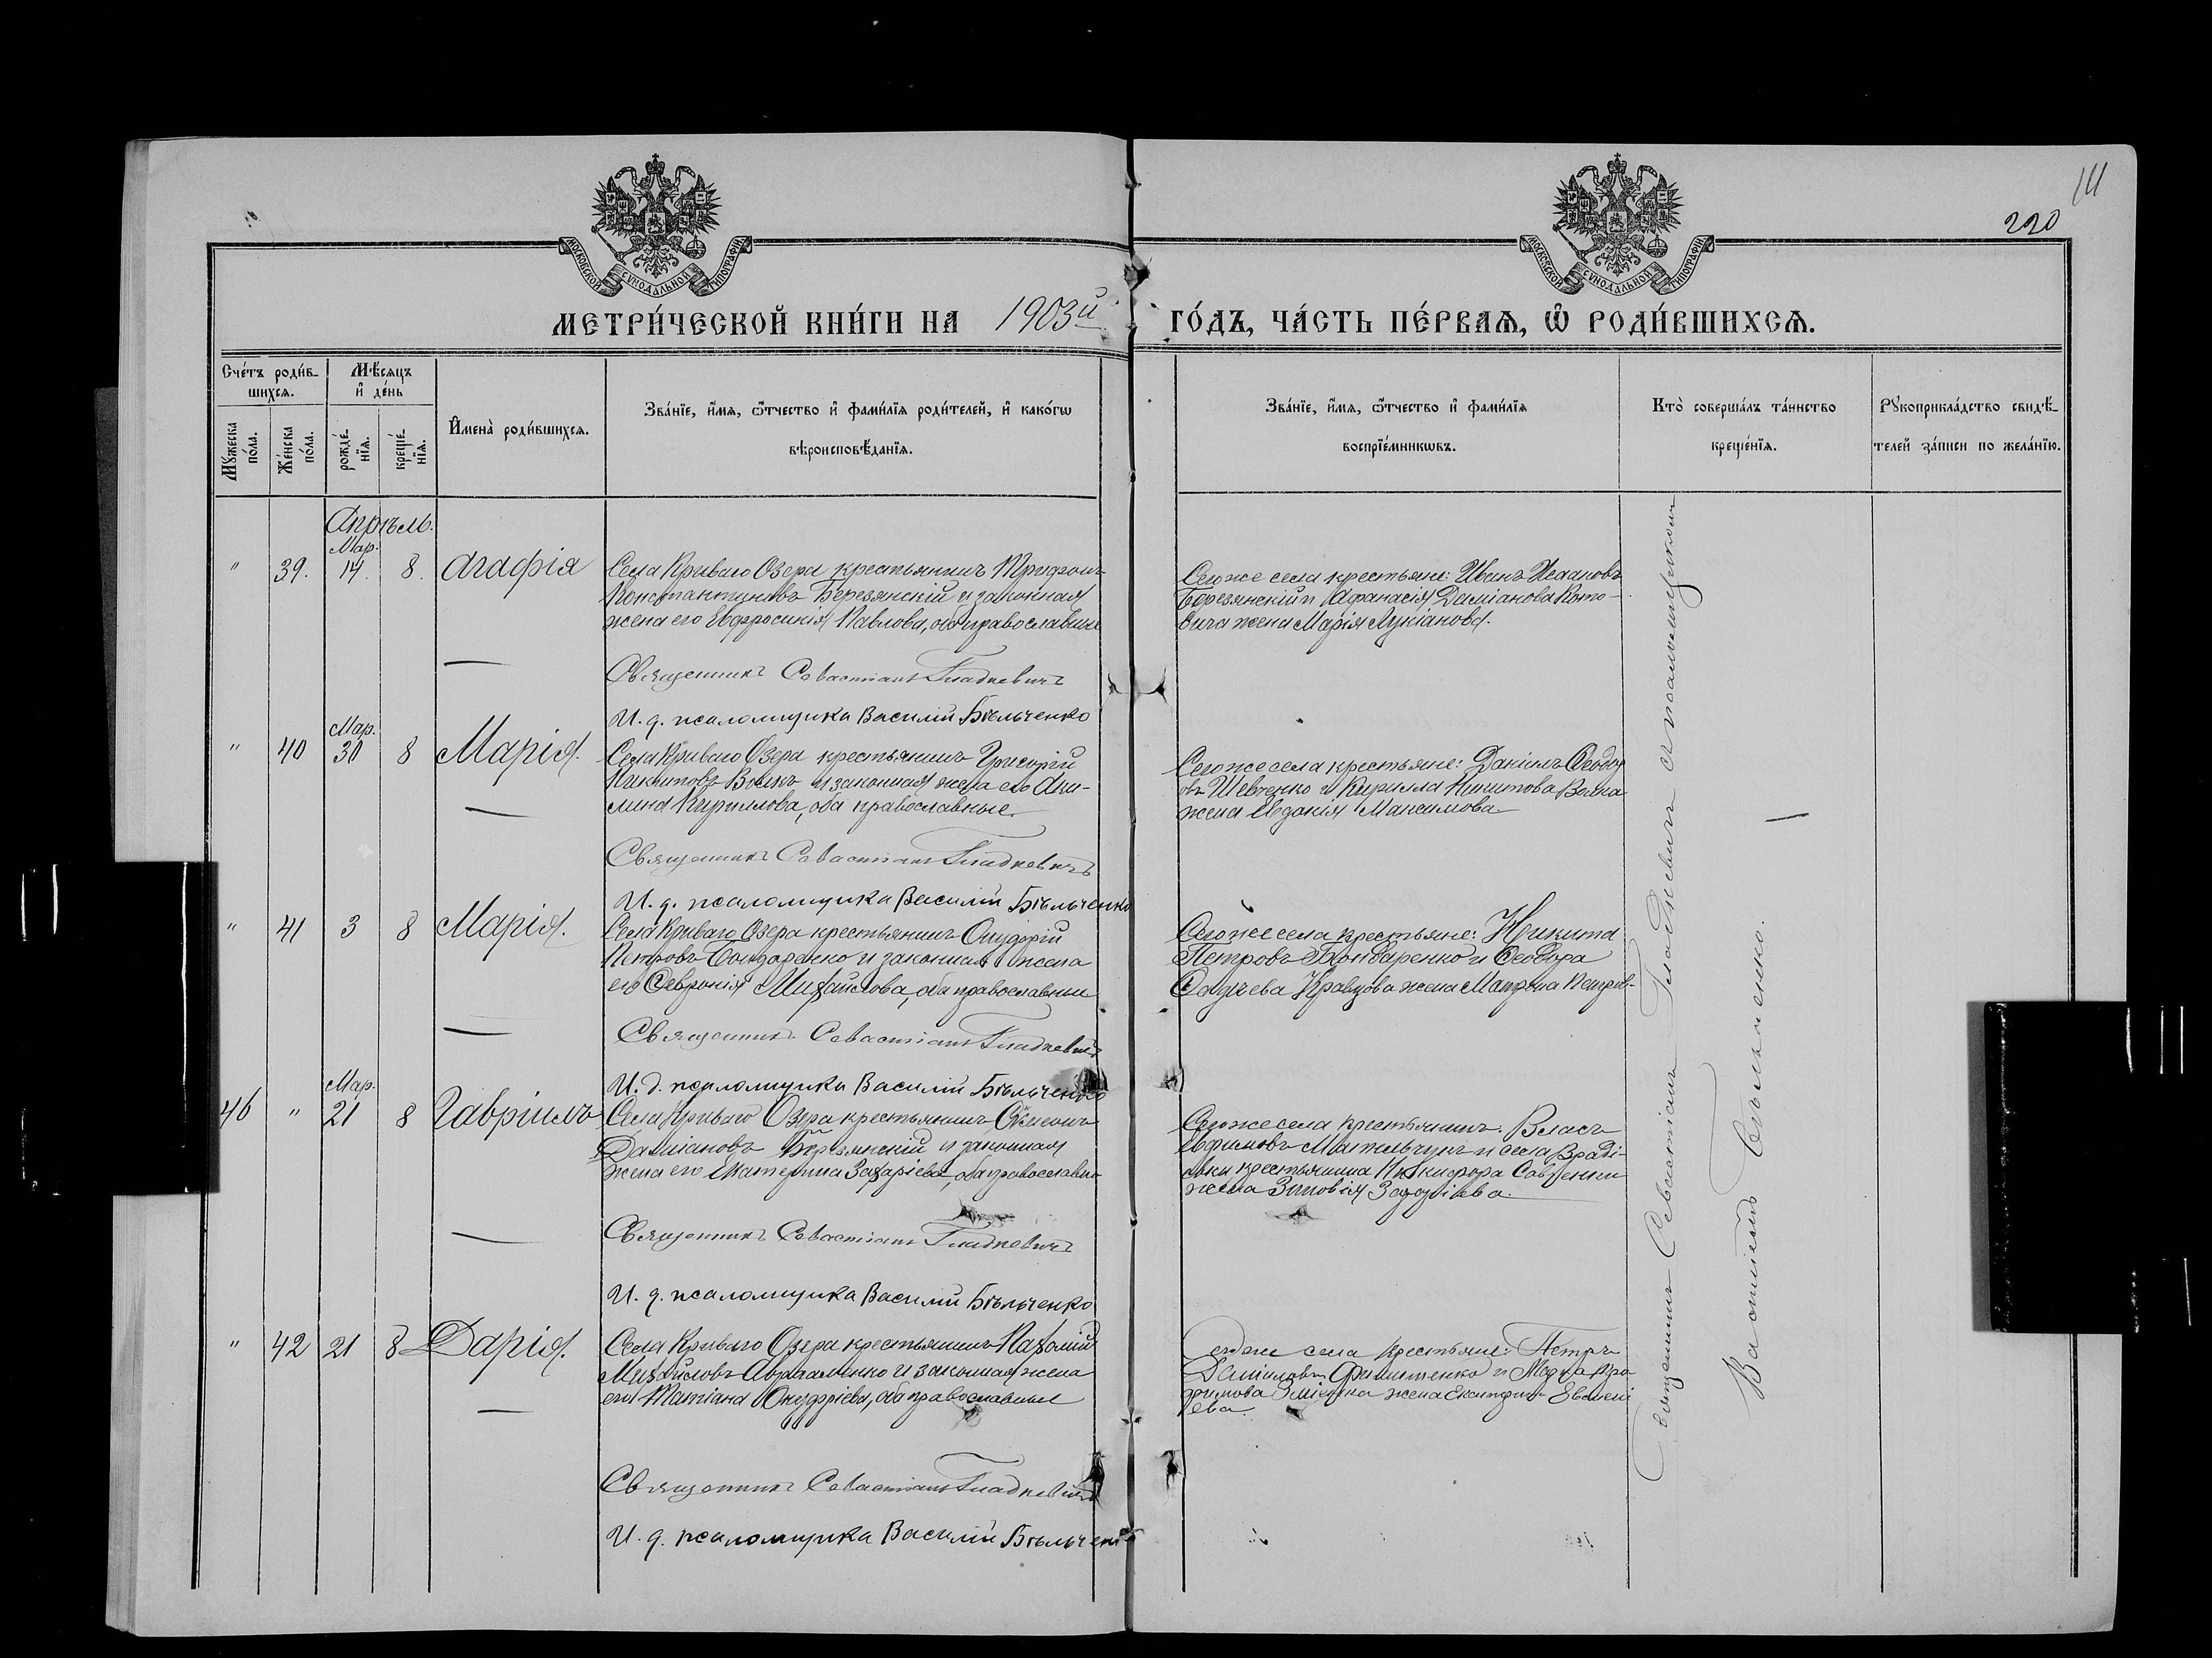 МОСКОВСКОЙ СѴНОДАЛЬНОЙ ТИПОГРАФІИ
МОСКОВСКОЙ СѴНОДАЛЬНОЙ ТИПОГРАФІИ
111
220
МЕТРИ́ЧЕСКОЙ КНИ́ГИ НА 1903й ГО́ДЪ, ЧА́СТЬ ПЕ́РВАЯ, Ѡ҆ РОДИ́ВШИХСЯ.
Сче́тъ роди́в-
шихся.
Мѣ́сяцъ
и҆ де́нь
Мꙋ́жеска по́ла.
Же́нска по́ла.
рожде́-
нїѧ.
креще́-
нїѧ.
И҆мена̀ роди́вшихся.
Зва́нїе, и҆́мѧ, ѻ҆́тчество и҆ фами́лїѧ роди́телей, и҆ како́гѡ
вѣроисповѣ́данїѧ.
Зва́нїе, и҆́мѧ, ѻ҆́тчество и҆ фами́лїѧ
воспрїе́мникѡвъ.
Кто̀ соверша́лъ та́инство
креще́нїѧ.
Рꙋкоприкла́дство свидѣ́-
телей за́писи по жела́нїю.
Апрѣль.
Мар.
" 39. 14. 8. Агафія
Села Криваго Озера крестьянинъ Трифонъ
Константиновъ Березянскій и законная
жена его Евфросинія Павлова, оба православные
Священникъ Севастіанъ Гладкевичъ
И. д. псаломщика Василій Бѣльченко
Сегоже села крестьяне: Иванъ
Березянскій и Афанасія Даміанова Кото-
вича жена Марія Лукіанова.
Мар.
" 40 30 8 Марія.
Села Криваго Озера крестьянинъ Григорій
Никитовъ Волкъ и законная жена его Аки-
лина Кириллова, оба православные.
Священникъ Севастіанъ Гладкевичъ
И. д. псаломщика Василій Бѣльченко
Сегоже села крестьяне: Даніилъ Ѳеодор
овъ Шевченко и Кирилла Никитова Волка
жена Евдокія Максимова
" 41 3 8 Марія.
Села Криваго Озера крестьянинъ Онуфрій
Петровъ Бондаренко и законная жена
его Ѳевронія Михайлова, оба православные
Священникъ Севастіанъ Гладкевичъ
И. д. псаломщика Василій Бѣльченко
Сегоже села крестьяне: Никита
Петровъ Бондаренко и Ѳеодора
Кравцова жена Матрона Петров-
Мар.
46 " 21 8 Гавріилъ
Села Криваго Озера крестьянинъ Сѵмеонъ
Даміановъ Березянскій и законная
жена его Екатерина Захаріева, оба православны
Священникъ Севастіанъ Гладкевичъ
И. д. псаломщика Василій Бѣльченко
Сегоже села крестьянинъ: Власъ
Ефимовъ и села Враді-
евки крестьянина Никифора Савченки
жена Зиновія Захаріева.
" 42 21 8 Дарія.
Села Криваго Озера крестьянинъ Пахомій
Михайловъ Авраменко и законная жена
его Татіана Онуфріева, оба православные
Священникъ Севастіанъ Гладкевичъ
И. д. псаломщика Василій Бѣльчен
Сегоже села крестьяне: Петръ
Данииловъ Филипенко и
жена Екатерина Евсеві
ева.
Священникъ Севастіанъ Гладкевичъ съ псаломщикомъ
Василіемъ Бѣльченко.